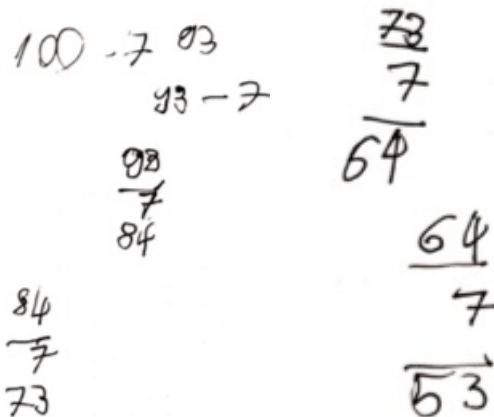 100 - 7 93
93 - 7
93
7
84
84
7
73
73
7
64
64
7
53